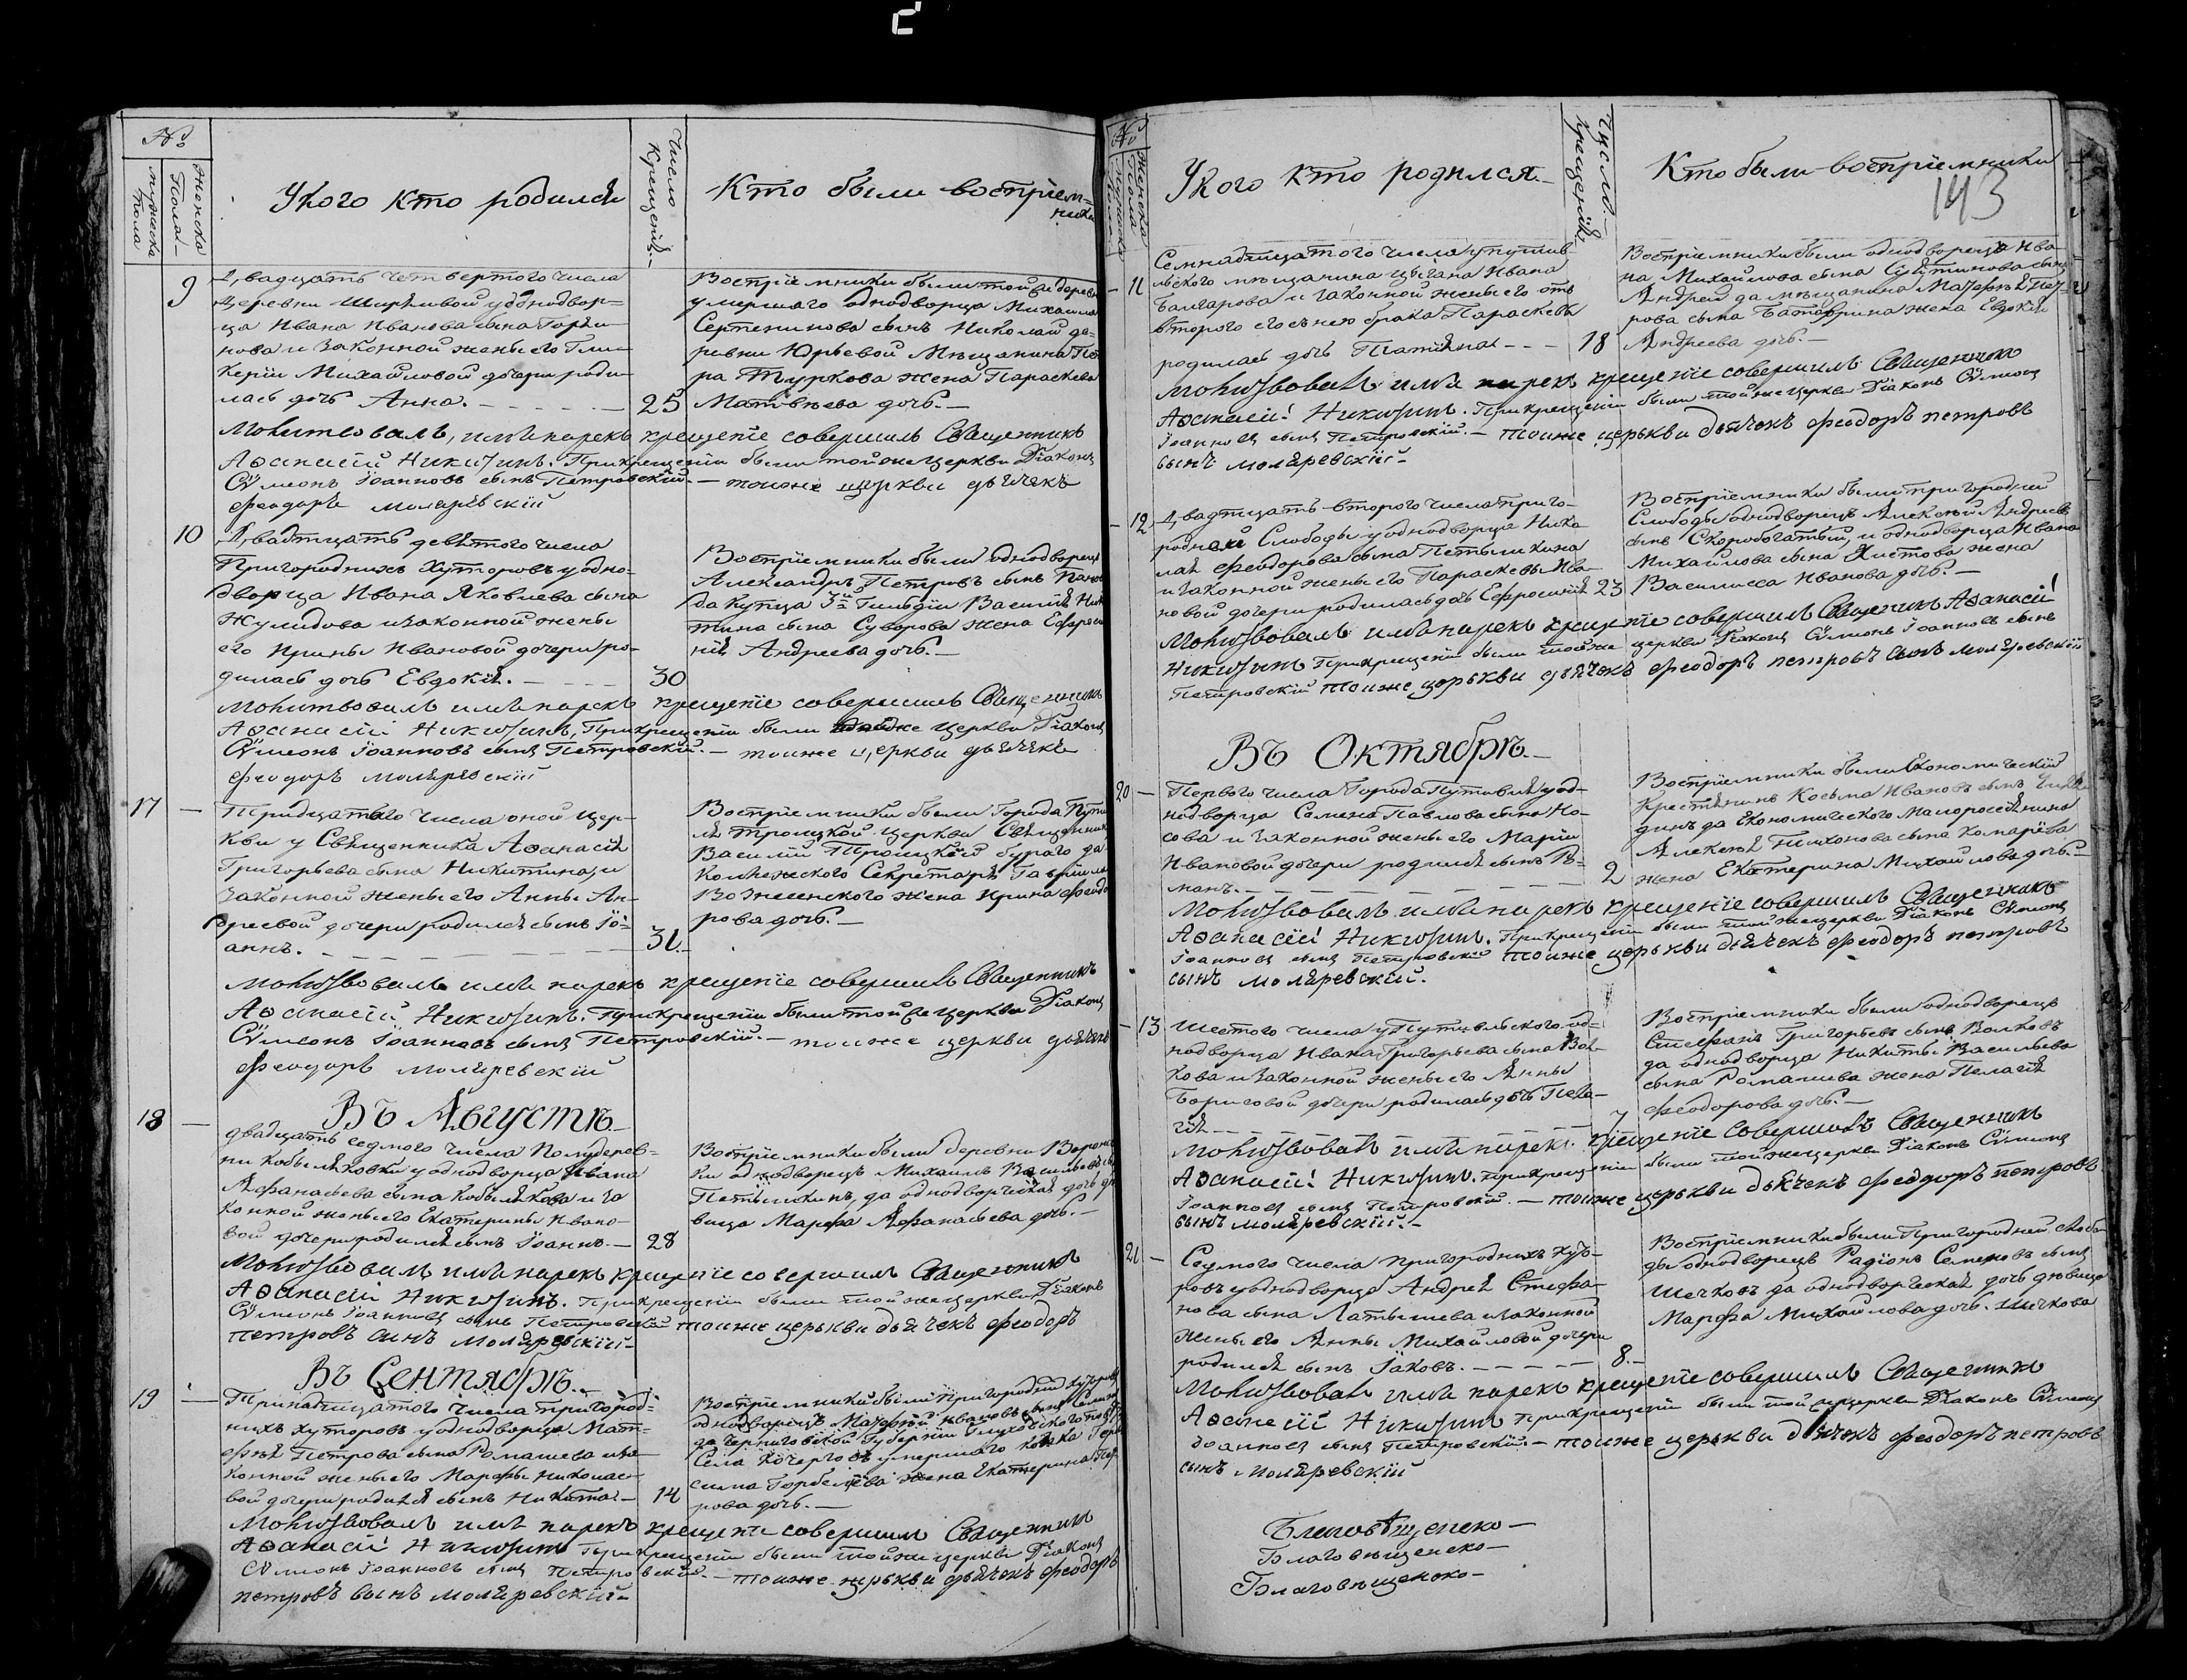 №
Женска Пола
мужеска пола
У кого кто родился
Число Крещенiя.
Кто были воспрiем=
ники
9
Двадцать четвертого числа
деревни Ширяевой у однодвор=
ца Ивана Иванова сына Горяи-
нова и законной жены его Гли-
керiи Михайловой дочери роди-
лась дочь Анна. 25
Воспрiемники были той же деревни
умершаго однодворца Михаила
сынъ Николай де-
ревни Юрьевой Мѣщанина Пет
ра Туркова жена Параскева
Матвѣева дочь.
Молитвовалъ, имя нарекъ крещенiе совершилъ Священникъ
Аѳанасiй Никитинъ. При крещенiи были той же Церкви Дiаконъ
Сѵмеонъ Iоанновъ сынъ Петровскiй. — тоиже церкви дьячекъ
Феодоръ моляревскiй
10
Двадцать девятого числа
Пригородних Хуторовъ у одно-
дворца Ивана Яковлева сына
Жулидова и законной жены
его Ирины Ивановой дочери ро-
дилась дочь Евдокiя. 30
Воспрiемники были однодворец
Александръ Петровъ сынъ
да купца 3й Гильдiи Василiя Ники
тина сына Суворова жена Ефроси
нiя Андреева дочь.
Молитвовалъ имя нарекъ крещенiе совершилъ Священникъ
Аѳанасiй Никитинъ, При крещенiи были тойже церкви Дiаконъ
Сѵмеонъ Iоанновъ сынъ Петровскiй. — тоиже церкви дьячекъ
Феодоръ моляревскiй
17
Тридцатого числа оной цер-
кви у Священника Аѳанасiя
Григорьева сына Никитина, и
законной жены его Анны Ан-
дреевой дочери родился сынъ Iо-
аннъ. 31.
Воспрiемники были Города Пути
ля Троицкой церкви Священник
Василiй Троицкiй да
Коллежского Секретаря Гаврiила
Вознесенского жена Ирина Феодо
рова дочь.
Молитвовалъ имя нарекъ крещенiе совершилъ Священникъ
Аѳанасiй Никитинъ. При крещенiи были той же церкви Дiаконъ
Сѵмеонъ Iоанновъ сынъ Петровскiй. — тоиже церкви дьячекъ
Феодоръ моляревскiй
Въ Августѣ
18
двадцать седмого числа дерев-
ни Кобыляковки у однодворца Ивана
Афанасьева сына Кобылякова и за
конной жены его Екатерины Ивано-
вой дочери родился сынъ Iоаннъ. — 28
Воспрiемники были деревни
однодворецъ Михаилъ Васильевъ
Петышкинъ, да однодворческая дочь дѣ
вица Марфа Афанасьева дочь.
Молитвовалъ имя нарекъ крещенiе совершилъ Священникъ
Аѳанасiй Никитинъ. При крещенiи были той же церкви Дiаконъ
Сѵмеонъ Iоанновъ сынъ Петровскiй тоиже церькви дьячекъ феодоръ
петровъ сынъ моляревскiй
Въ Сентябрѣ.
19
Тринадцатого числа пригород=
нихъ хуторовъ у однодворца Мат-
фѣя Петрова сына Ромашева и за-
конной жены его Марфы Николае-
вой дочери родился сынъ Никита — 14
Воспрiемники были Пригородних хуторов
однодворецъ Матфей Ивановъ сынъ
да Черниговской Губернiи Глуховского пов
Села Кочергов умершаго козака
жена Екатерина Пет
рова дочь. —
Молитвовалъ имя нарекъ крещенiе совершилъ Священникъ
Аѳанасiй Никитинъ При крещенiи были той же церкви Дiаконъ
Сѵмеонъ Iоанновъ сынъ Петровскiй. — тоиже церькви дьячекъ феодоръ
петровъ сынъ моляревскiй
№
Женска Пола
У кого кто родился
Число крещенiя
Кто были воспрiемники
143
11
Семнадцатого числа у путив-
льского мѣщанина цыгана Ивана
Балгарова и законной жены его отъ
второго его съ нею брака Параскевы
родилась дочь Татiяна 18
Воспрiемники были однодворца Ива-
на Михайлова сына сынъ
Андрей да мѣщанина Матфѣя Пет-
рова сына жена Евдокiя
Андреева дочь. —
Молитвовалъ имя нарекъ крещенiе совершилъ Священникъ
Аѳанасiй Никитинъ. При крещенiи были той же церкви Дiаконъ Сѵмеонъ
Iоанновъ сынъ Петровскiй. — тоиже церькви дьячекъ феодоръ петровъ
сынъ моляревскiй
12
Двадцать второго числа приго-
родней Слободы у однодворца Нико
лая Феодорова сына Петышкина
и законной жены его Параскевы Ива-
новой дочери родилась дочь Ефросинiя 23
Воспрiемники были пригородней
Слободы однодворецъ Алексѣй Андреевъ
сынъ Скоробогатый, и однодворца Ивана
Михайлова сына Хлистова жена
Василисса Иванова дочь. —
Молитвовалъ имя нарекъ крещенiе совершилъ Священникъ Аѳанасiй
Никитинъ При крещенiи были тойже церкви Дiаконъ Сѵмеонъ Iоанновъ сынъ
Петровскiй тоиже церькви дьячекъ феодоръ петровъ сынъ моляревскiй
Въ Октябрѣ.
20
Первого числа Города Путивля у од-
нодворца Семена Павлова сына Но-
сова и законной жены его Марiи
Ивановой дочери родился сынъ Ро-
манъ. 2
Воспрiемники были Экономическiй
Крестянинъ Косьма Ивановъ сынъ
да Економического Малоросiянина
Алексѣя Тихонова сына Комарева
жена Екатерина Михайлова дочь. —
Молитвовалъ имя нарекъ крещенiе совершилъ Священникъ
Аѳанасiй Никитинъ. При крещенiи были той же церкви Дiаконъ Сѵмеонъ
Iоанновъ сынъ Петровскiй тоиже церькви дьячекъ феодоръ петровъ
сынъ моляревскiй.
13
Шестого числа у Путивльского од-
нодворца Ивана Григорьева сына Вол-
кова и законной жены его Анны
Борисовой дочери родилась дочь Пела-
гiя 7
Воспрiемники были однодворецъ
Стефанъ Григорьевъ сынъ Волковъ
да однодворца Никиты Васильева
сына Ромашева жена Пелагiя
Феодорова дочь. —
Молитвовалъ имя нарекъ крещенiе совершилъ Священникъ
Аѳанасiй Никитинъ. При крещенiи были той же церкви Дiаконъ Сѵмеонъ
Iоанновъ сынъ Петровскiй. — тоиже церькви дьячекъ феодоръ петровъ
сынъ моляревскiй. —
21
Седмого числа пригороднихъ хуто-
ровъ у однодворца Андрея Стефа-
нова сына Латышева и законной
жены его Анны Михайловой дочери
родился сынъ Iаковъ. 8.
Воспрiемники были Пригородней Слобо
ды однодворецъ Радiонъ Семеновъ сынъ
Шечковъ да однодворческая дочь дѣвица
Марфа Михайлова дочь. Шечкова
Молитвовалъ имя нарекъ крещенiе совершилъ Священникъ
Аѳанасiй Никитинъ При крещенiи были той же церкви Дiаконъ Сѵмеонъ
Iоанновъ сынъ Петровскiй — тоиже церькви дьячекъ феодоръ петровъ
сынъ моляревскiй
Благовѣщенско —
Благовѣщенско —
Благовѣщенско —